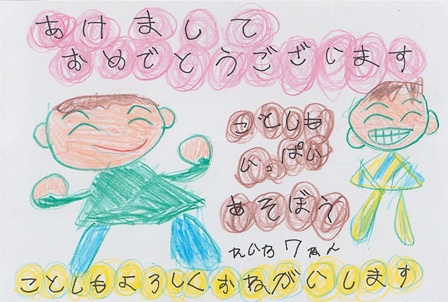 あけまして
おめでとうございます
ことしも
いっぱい
あそぼう
ことしもよろしくおねがいします